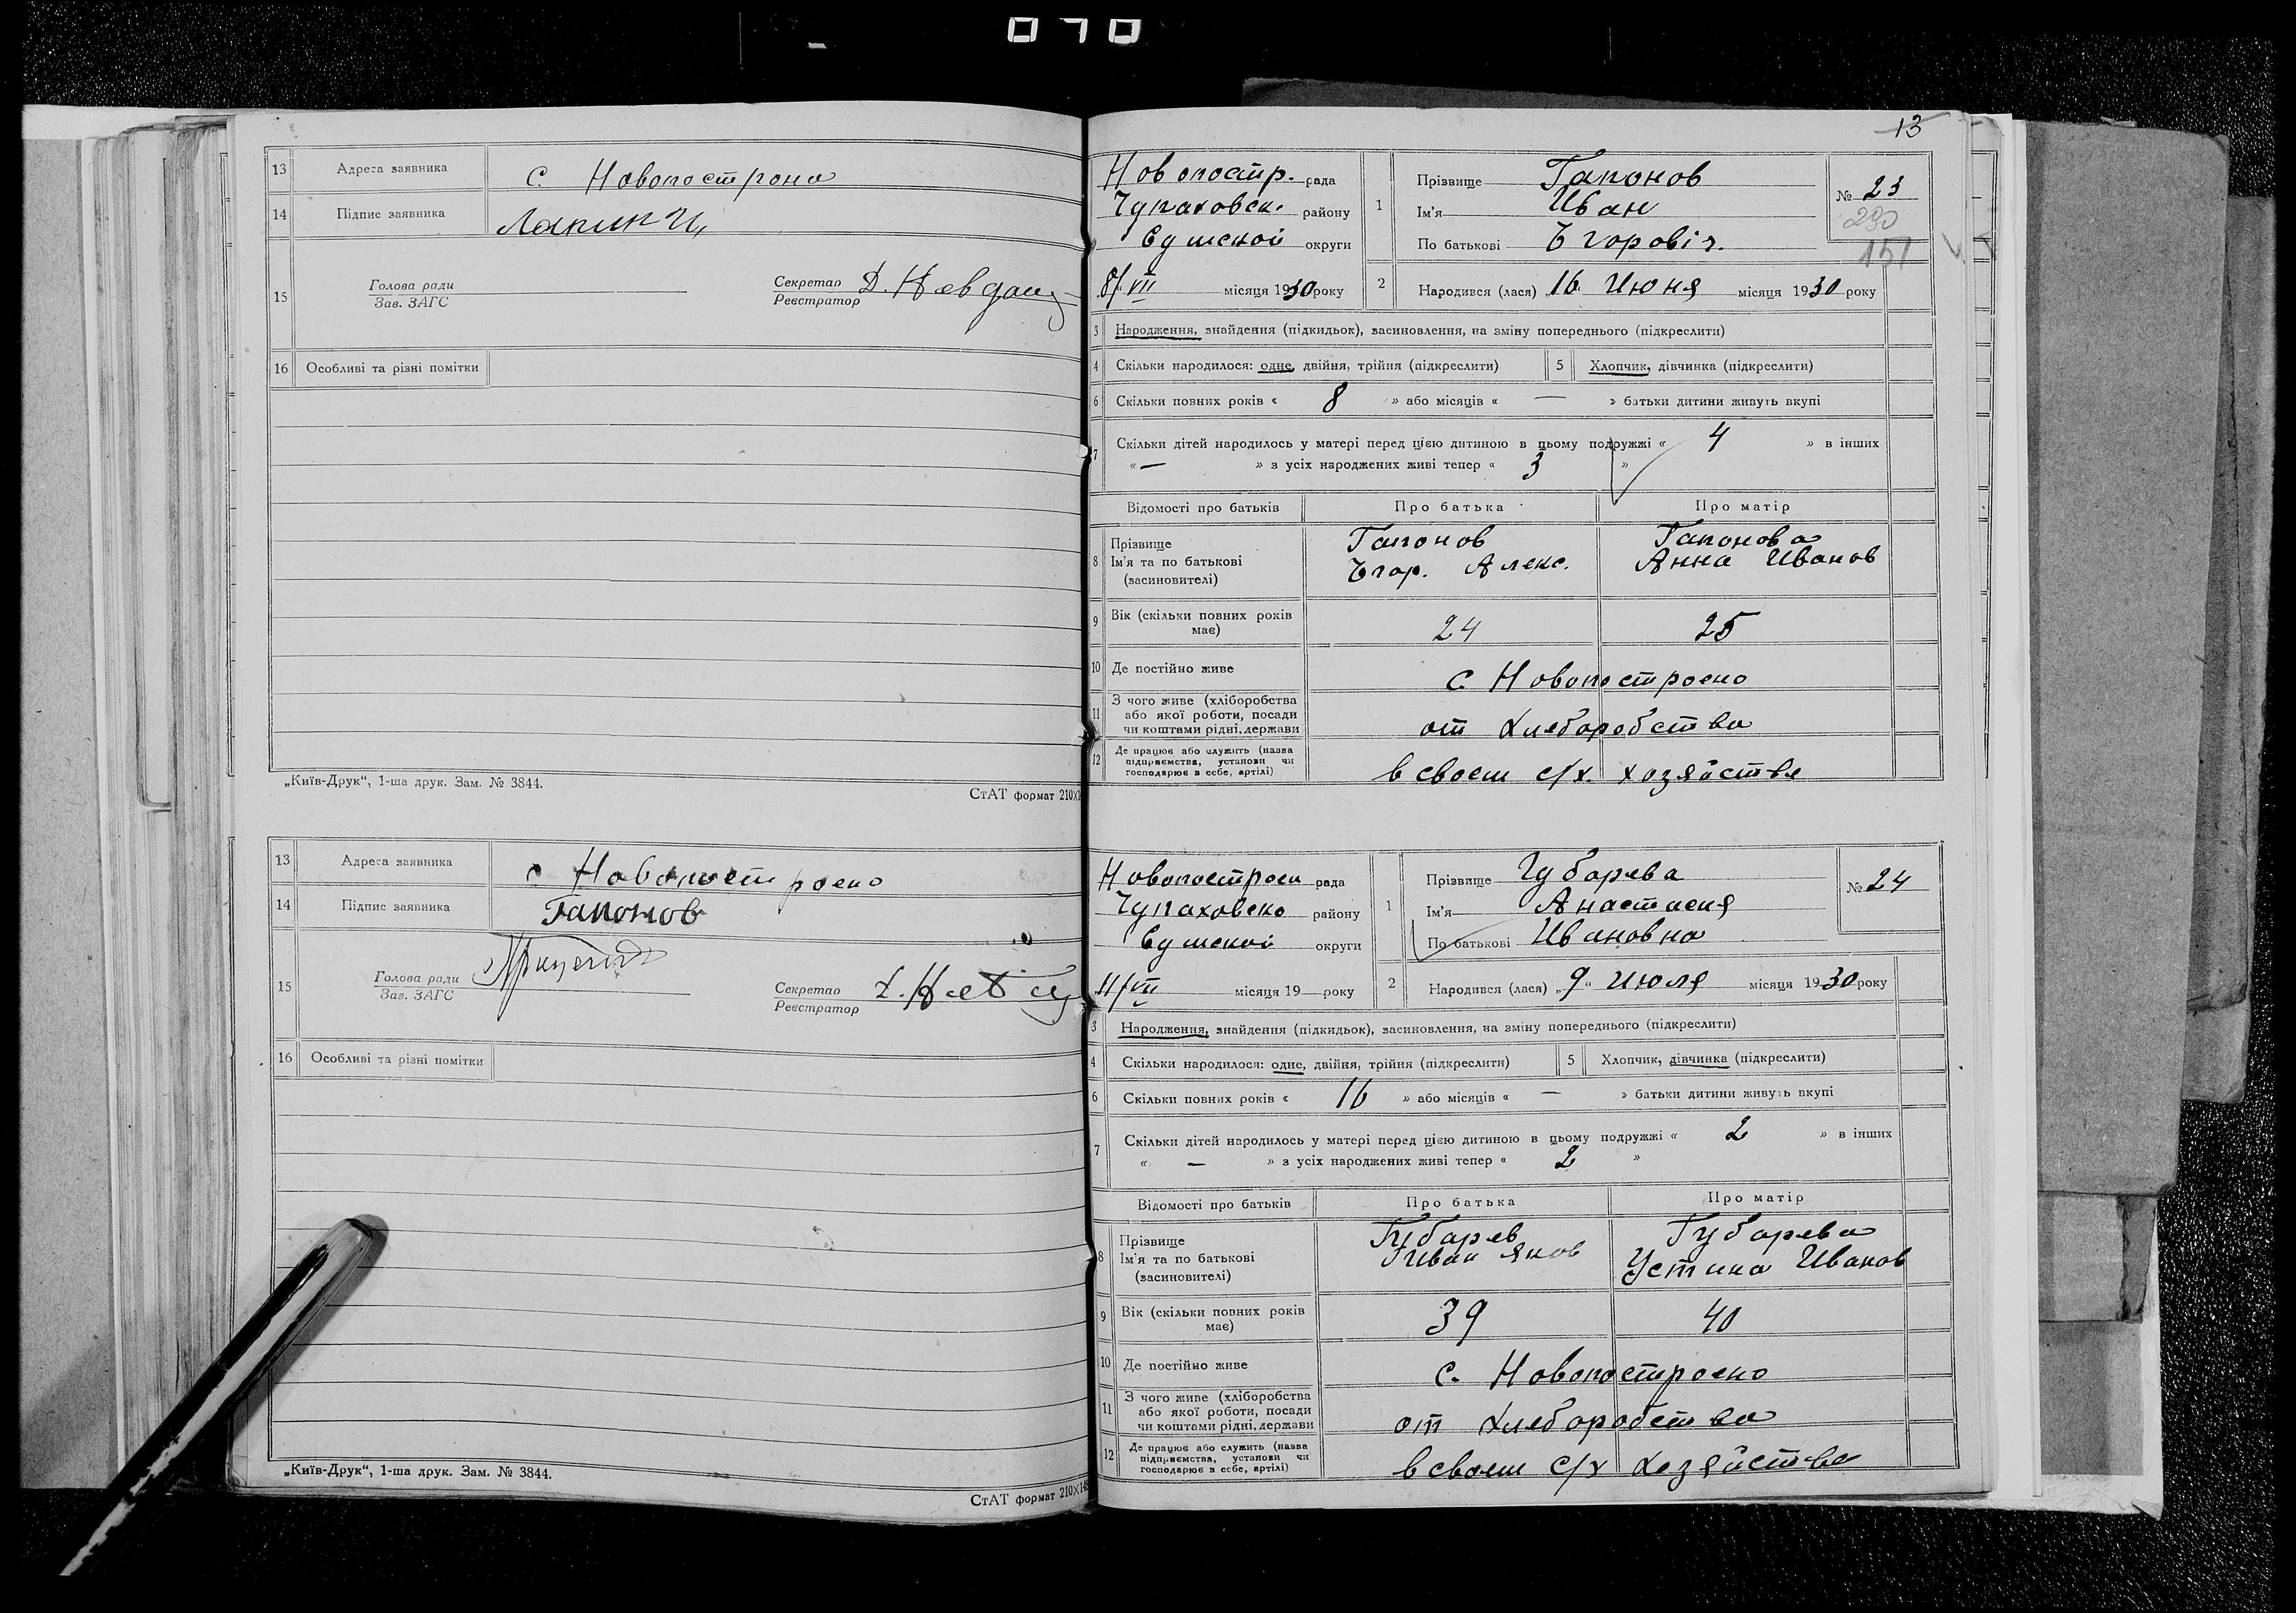 070
13 Адреса заявника с. Новопострона
14 Підпис заявника Лапин И,
15 Голова ради Секретар
Зав. ЗАГС Реєстратор
16 Особливі та різні помітки
„Київ-Друк“, 1-ша друк. Зам. № 3844.
СтАТ формат 210×1
13 Адреса заявника с Новопостроено
14 Підпис заявника Гапонов
15 Голова ради Секретар
Зав. ЗАГС Реєстратор
16 Особливі та різні помітки
„Київ-Друк“, 1-ша друк. Зам. № 3844.
СтАТ формат 210×148
13
Новопостр. рада 1 Прізвище Гапонов № 23
Чупаховск. району Ім'я Иван 290
Сумской округи По батькові Егоровіч. 151
8/VII місяця 1930 року 2 Народився (лася) „16 Июня місяця 1930 року
3 Народження, знайдення (підкидьок), засиновлення, на зміну попереднього (підкреслити)
4 Скільки народилося: одне, двійня, трійня (підкреслити) 5 Хлопчик, дівчинка (підкреслити)
6 Скільки повних років « 8 » або місяців « — » батьки дитини живуть вкупі
7 Скільки дітей народилось у матері перед цією дитиною в цьому подружжі « 4 » в інших
« — » з усіх народжених живі тепер « 3 »
Відомості про батьків Про батька Про матір
8 Прізвище Гапонов Гапонова
Ім'я та по батькові Егор. Алекс. Анна Иванов
(засиновителі)
9 Вік (скільки повних років має) 24 25
10 Де постійно живе с. Новопостроено
11 З чого живе (хліборобства
або якої роботи, посади
чи коштами рідні, держави от хлеборобства
12 Де працює або служить (назва
підприємства, установи чи
господарює в себе, артілі) в своем с/х. хозяйстве
Новопостроен рада 1 Прізвище Губарева № 24
Чупаховско району Ім'я Анастасия
Сумской округи По батькові Ивановна
11/VII місяця 19 року 2 Народився (лася) „9“ Июля місяця 1930 року
3 Народження, знайдення (підкидьок), засиновлення, на зміну попереднього (підкреслити)
4 Скільки народилося: одне, двійня, трійня (підкреслити) 5 Хлопчик, дівчинка (підкреслити)
6 Скільки повних років « 16 » або місяців « — » батьки дитини живуть вкупі
7 Скільки дітей народилось у матері перед цією дитиною в цьому подружжі « 2 » в інших
« — » з усіх народжених живі тепер « 2 »
Відомості про батьків Про батька Про матір
8 Прізвище Губарев Губарева
Ім'я та по батькові Иван Яков Устина Иванов
(засиновителі)
9 Вік (скільки повних років має) 39 40
10 Де постійно живе с. Новопостроено
11 З чого живе (хліборобства
або якої роботи, посади
чи коштами рідні, держави от хлеборобства
12 Де працює або служить (назва
підприємства, установи чи
господарює в себе, артілі) в своем с/х хозяйстве